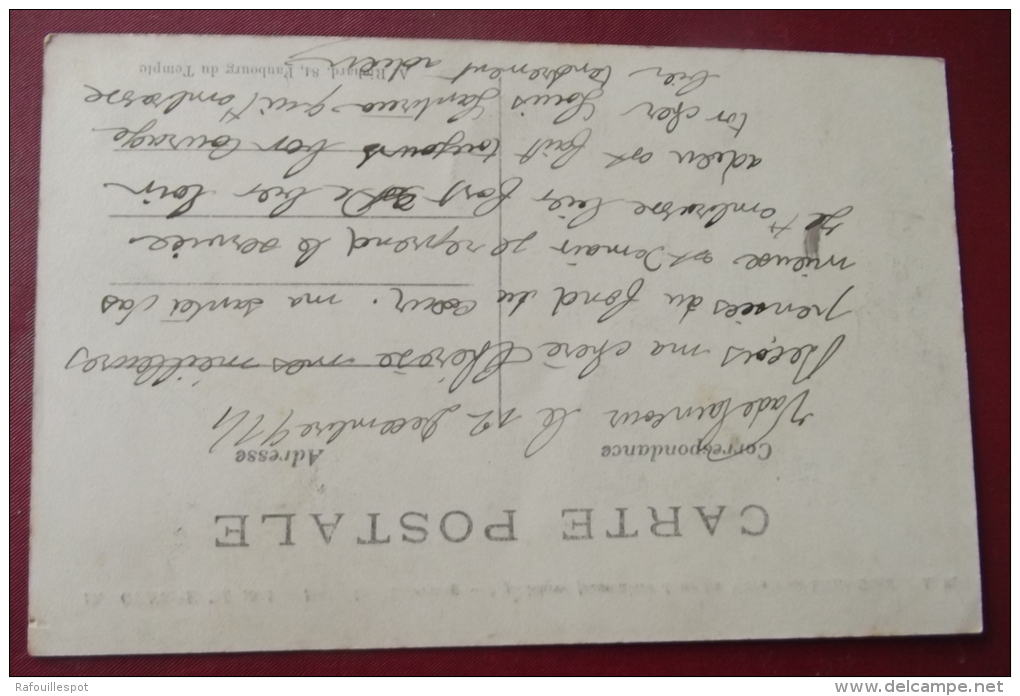 CARTE POSTALE
Correspondance Adresse
le 12 Decembre 1914
Reçois ma chère Thérèse mes meilleures
pensées du fond du cœur. ma santé vas
mieux et Demain je reprend le service
je t'embrasse bien fort de bien loin
adieu et fait toujours bon courage
ton cher Louis qui t'embrasse
bien tendrement adieu
A. Richard, 84, Faubourg du Temple
Rafouillespot
www.delcampe.net